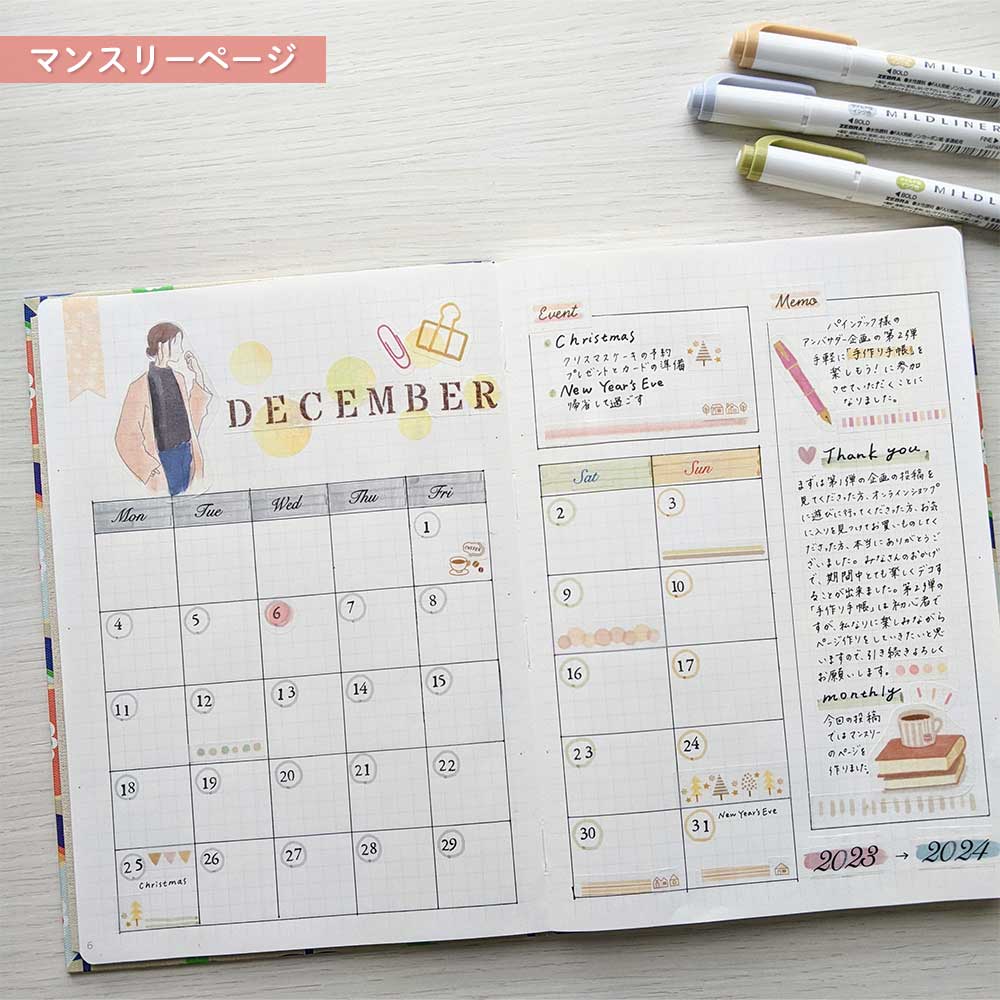 マンスリーページ
MILDLINER
BOLD
ZEBRA
MILDLINER
BOLD
FINE
ZEBRA
MILDLINER
BOLD
ZEBRA
DECEMBER
Mon Tue Wed Thu Fri
1
COFFEE
4 5 6 7 8
11 12 13 14 15
18 19 20 21 22
25 26 27 28 29
Christmas
6
Event
Christmas
クリスマスケーキの予約
プレゼントとカードの準備
New Year's Eve
帰省して過ごす
Sat Sun
2 3
9 10
16 17
23 24
30 31
New Year's Eve
Memo
パインブック様の
アンバサダー企画の第2弾
手軽に「手作り手帳」を
楽しもう!に参加
させていただくことに
なりました。
Thank you
まずは第1弾の企画の投稿を
見てくださった方、オンラインショップ
に遊びに行ってくださった方、お気
に入りを見つけてお買いものしてく
ださった方、本当にありがとうご
ざいました。みなさんのおかげ
で、期間中とても楽しくデコす
ることが出来ました。第2弾の
「手作り手帳」は初心者で
すが、私なりに楽しみながら
ページ作りをしていきたいと思
いますので、引き続きよろしく
お願いします。
monthly
今回の投稿
ではマンスリー
のページを
作りました。
2023 → 2024